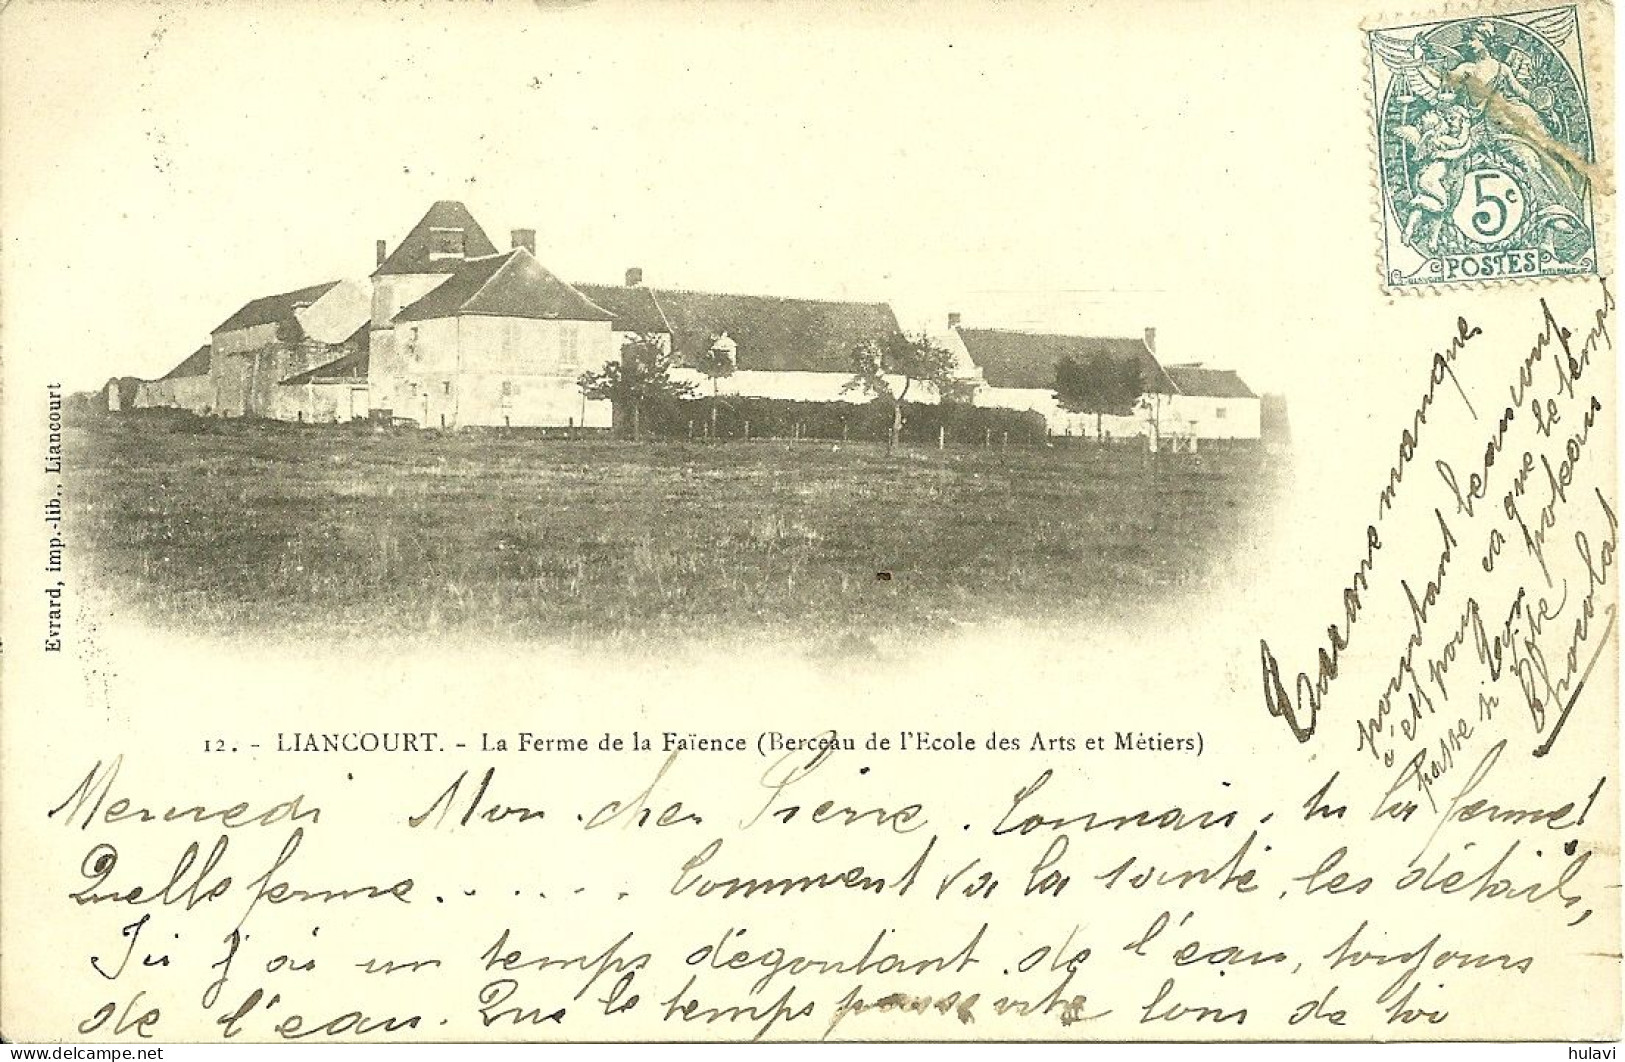 RÉPUBLIQUE FRANÇAISE
5c
POSTES
Evrard, imp.-lib., Liancourt
12. - LIANCOURT. - La Ferme de la Faïence (Berceau de l'Ecole des Arts et Métiers)
Mercredi Mon cher Pierre. Connais-tu la ferme!
Quelle ferme...... Comment va la santé, les détails,
Ici j'ai un temps dégoutant de l'eau, toujours
de l'eau. Que le temps passe vite loin de toi
Tu me manque
pourtant beaucoup
c'est pour ça que le temps
passe si
vite
Chocolat
hulavi